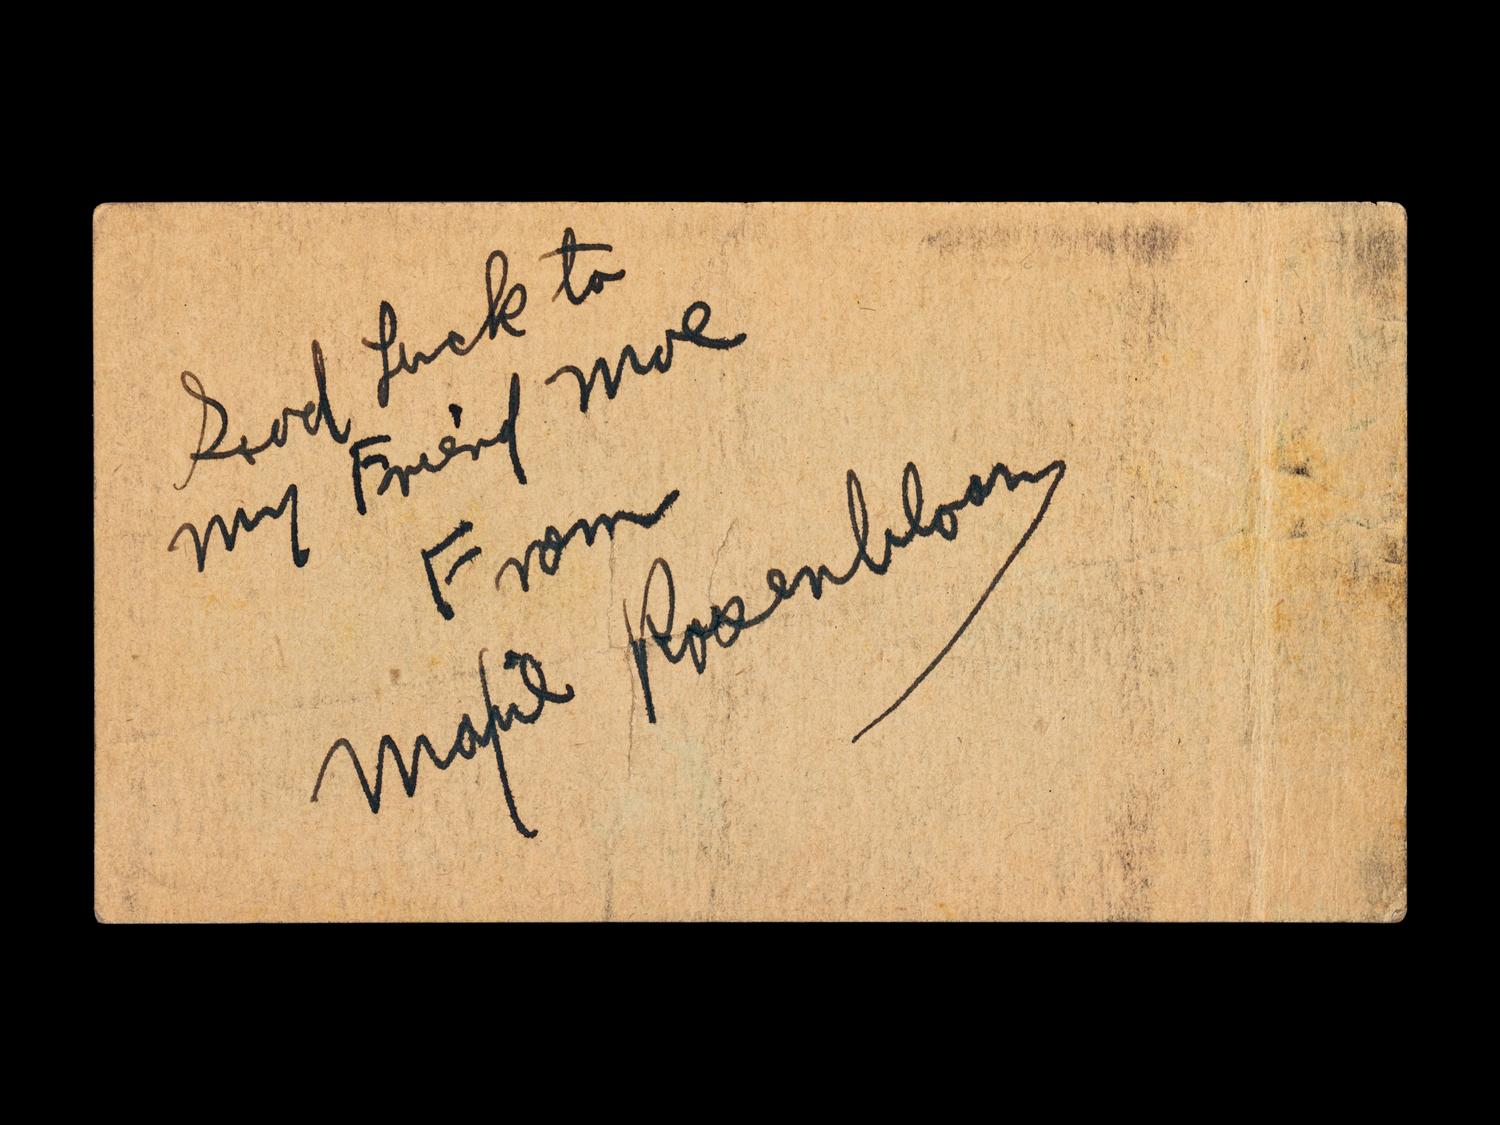 Good Luck to
my Friend Moe
From
Mapie Rosenbloom